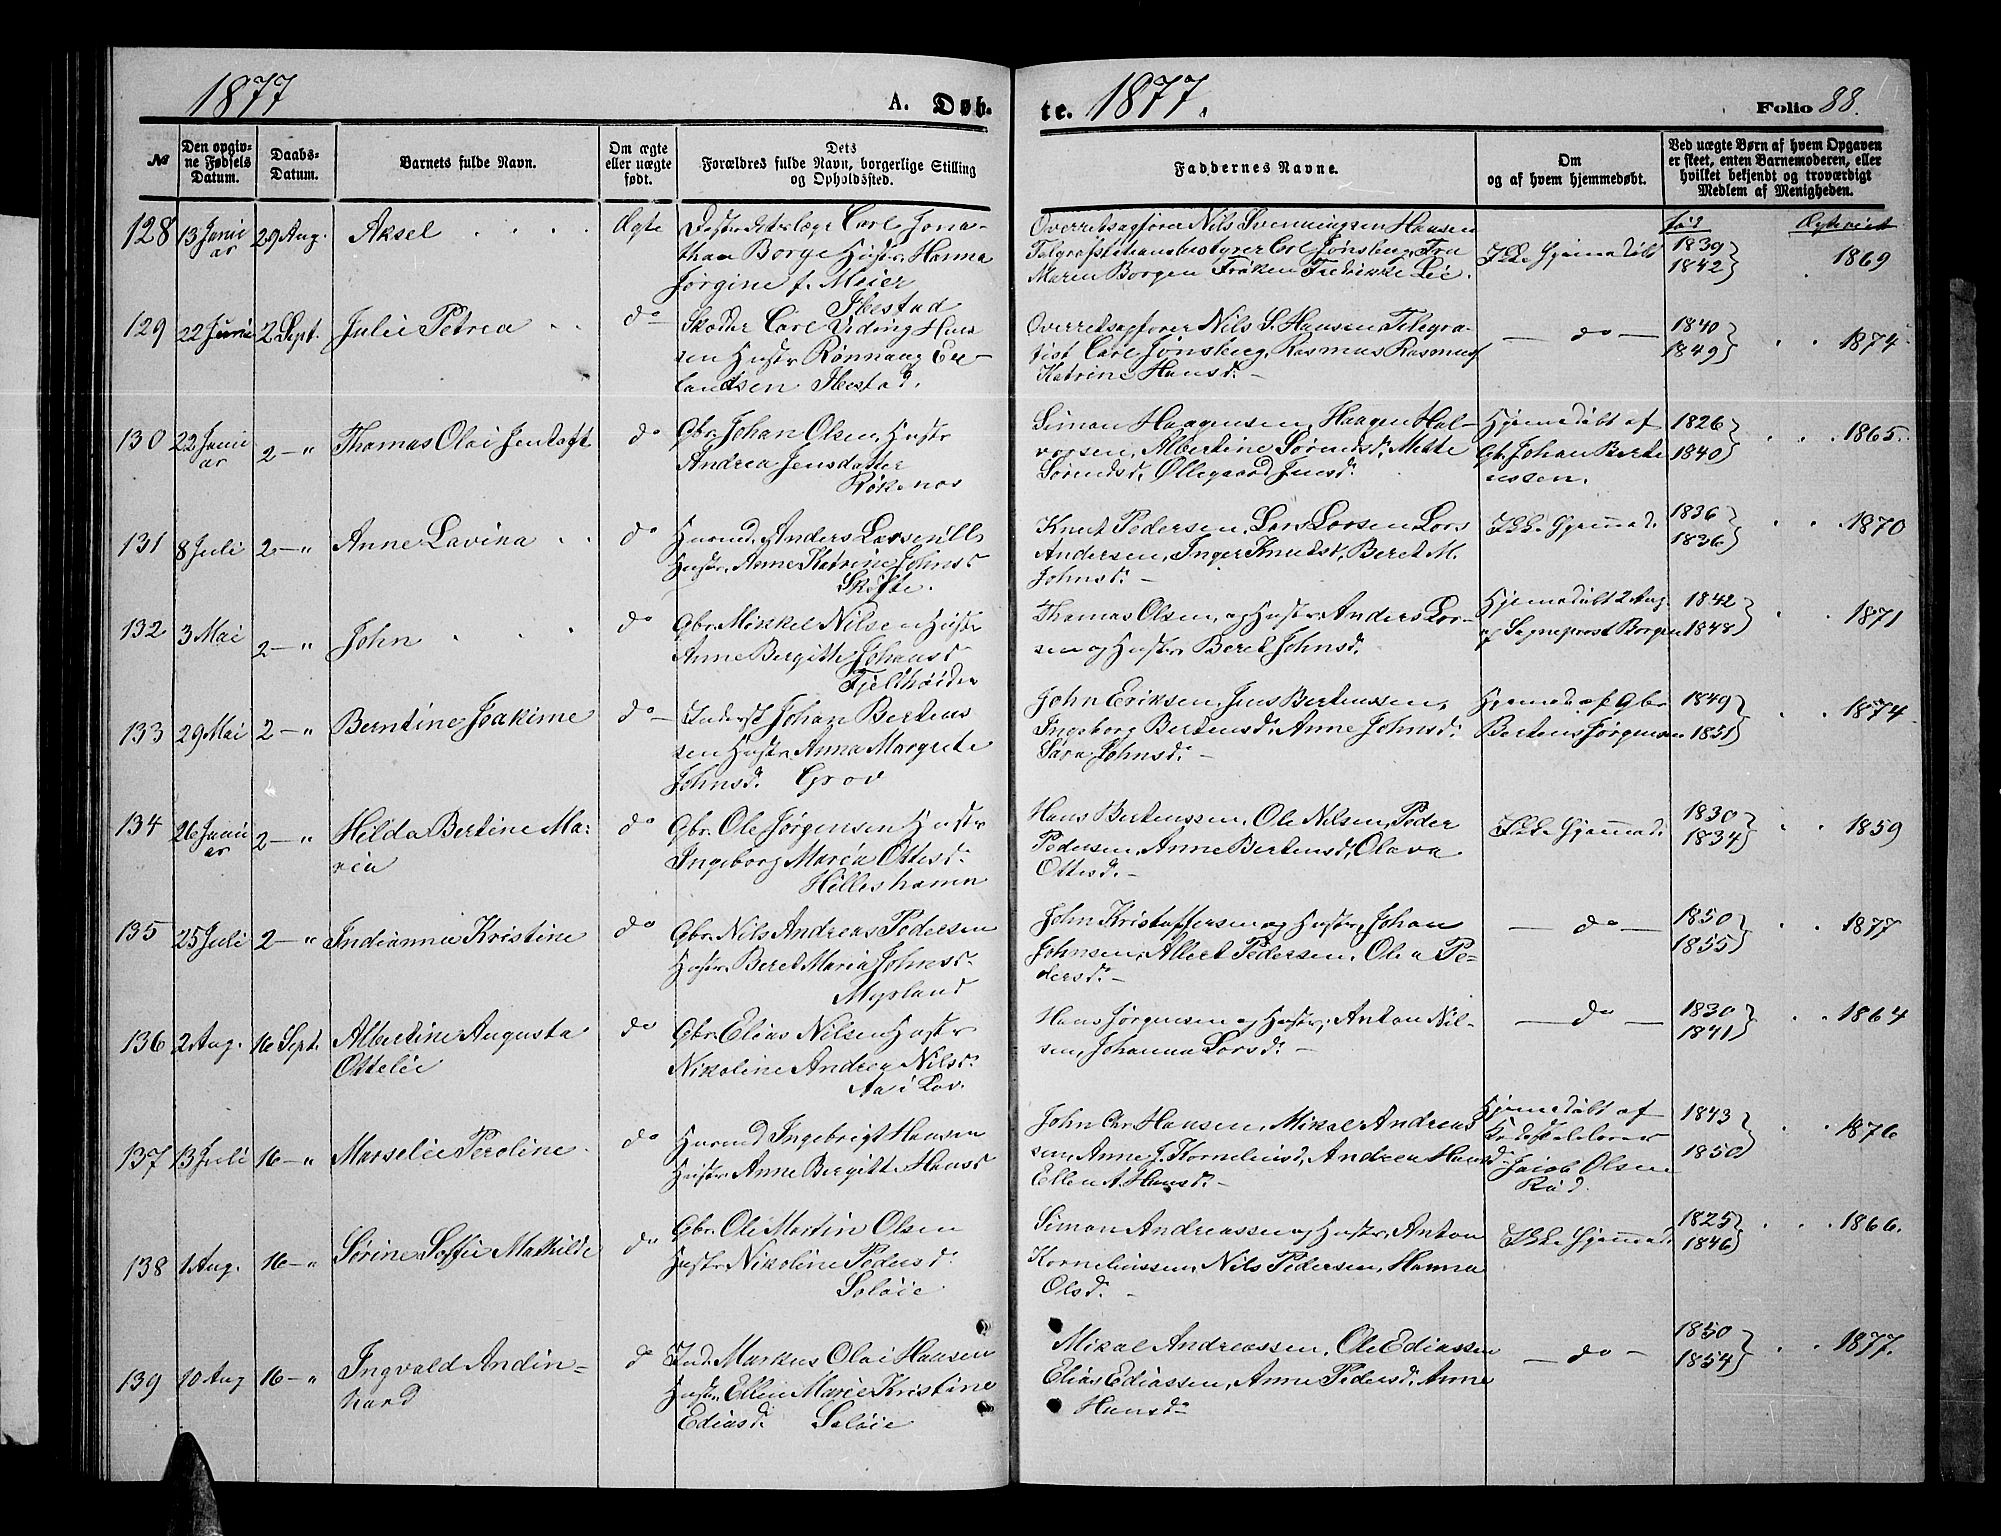 1877 A. Døb-
te. 1877. Folio 88.
№
Den opgiv-
ne Fødsels
Datum.
Daabs-
Datum.
Barnets fulde Navn.
Om ægte
eller uægte
født.
Dets
Forældres fulde Navn, borgerlige Stilling
og Opholdssted.
Faddernes Navne.
Om
og af hvem hjemmedøbt.
Ved uægte Børn af hvem Opgaven
er skeet, enten Barnemoderen, eller
hvilket bekjendt og troværdigt
Medlem af Menigheden.
født Ægteviet
128 13 Janu
ar 29 Aug. Aksel Ægte
Carl Jona-
than Borge Hustr. Hanna
Jørgine f. Meier
Ibestad
Overretsagfører Nils Svenningsen Hansen
Telgrafstationsbestyrer Carl Jønsberg, Fru
Maren Borgen Frøken Fredrikke Lie.
Ikke Hjemmedøbt
1839
1842 1869
129 22 Juni 2 Sept. Julie Petrea do
Carl Vidring Han
sen Hustr. Rønnaug Er-
landsen Ibestad.
Overretsagfører Nils S. Hansen Telegra-
fist Carl Jønsberg, Rasmus Rasmuss
Katrine Hansd. -
- do -
1840
1849 1874
130 22 Janu
ar 2 - " Thomas Olai Jentoft do
Gbr. Johan Olsen, Hustr
Andrea Jensdatter
Røkenæs
Simon Haagensen, Haagen Hal-
vorsen, Albertine Sørensd. Mette
Sørensd. Ollegaard Jensd.
Hjemmedøbt af
Gb. Johan Berte
nssen.
1826
1840 1865.
131 8 Juli 2 - " Anne Lavina do
Husmd. Anders Larsen
Hustr. Anne Katrine Johnsd
Skøfte.
Knut Pedersen, Lars Larsen Lars
Andersen, Inger Knutsd. Beret M.
Johnsd. -
Ikke Hjemmed.
1836
1836 1870
132 3 Mai 2 - " John do
Gbr. Mikkel Nilsen Hustr
Anne Bergitte Johansd
Fjeldhøider
Thomas Olsen, og Hustr. Anders Lar-
sen og Hustr. Beret Johnsd.
Hjemmedøbt 2 Aug.
af Sogneprest Borgen
1842
1848 1871
133 29 Mai 2 - " Berntine Joakime do -
Inderst Johan Bertens
sen Hustr. Anna Margrete
Johnsd. Grov
John Eriksen, Jens Bertenssen,
Ingeborg Bertensd. Anne Johnsd.
Sara Johnsd. -
Hjemmed. af Gbr
Bertens Jørgensen
1849
1851 1874
134 26 Janu
ar 2 - " Hilda Bertine Ma-
ria do
Gbr. Ole Jørgensen Hustr
Ingeborg Maria Ottesd.
Hilleshamn
Hans Bertenssen, Ole Nilsen, Peder
Pedersen, Anne Bertensd, Olava
Ottesd. -
Ikke Hjemmed.
1830
1834 1859
135 25 Juli 2 - " Indianna Kristine do
Gbr. Nils Andreas Pedersen
Hustr. Beret Maria Johnsd.
Myrland
John Kristoffersen og Hustr. Johan
Johnsen, Albert Pedersen. Olea Pe-
dersd. -
- do -
1850
1855 1877
136 2 Aug. 16 Sept. Albertine Augusta
Ottelie do
Gbr. Elias Nilsen Hustr
Nikoline Andrea Nilsd.
Aa i Lav.
Hans Jørgensen og Hustr, Anton Nil-
sen, Johanna Larsd. -
- do -
1830
1841 1864
137 13 Juli 16 - " Marselie Peroline do
Husmd Ingebrigt Hansen
Hustr. Anne Bergitte Hansd
John Chr Hansen, Mikal Andreas
sen, Anne J. Kornelinsd, Andrea Hansd.
Ellen A. Hansd. -
Hjemmedøbt af
Jakob Olsen
Rød.
1843
1850 1876
138 1 Aug. 16 - " Sørine Soffie Mathilde do
Gbr. Ole Martin Olsen
Hustr. Nikoline Pedersd.
Soløie
Simon Andreassen og Hustr, Anton
Korneliussen, Nils Pedersen, Hanna
Olsd. -
Ikke Hjemmed.
1825
1846 1866.
139 10 Aug 16 - " Ingvald Andin-
nard d
Ind. Markus Olai Hansen
Hustr. Ellen Marie Kristine
Ediasd. Soløie
Mikal Andreassen, Ole Ediassen
Elias Ediassen, Anne Pedersd, Anne
Hansd.
- do -
1850
1854 1877.